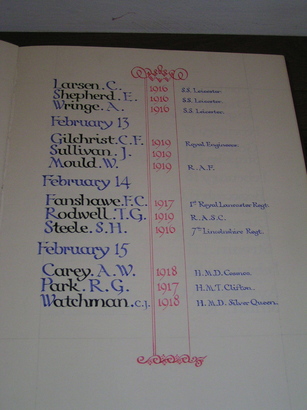 Larsen. C. 1916 S.S. Leicester.
Shepherd. E. 1916 S.S. Leicester.
Wringe. A. 1916 S.S. Leicester.
February 13
Gilchrist. C.F. 1919 Royal Engineers.
Sullivan. J. 1919
Mould. W. 1919 R.A.F.
February 14
Fanshawe. F.C. 1917 1st Royal Lancaster Regt.
Rodwell. T.G. 1919 R.A.S.C.
Steele. S.H. 1916 7th Lincolnshire Regt.
February 15
Carey. A.W. 1918 H.M.D.
Park. R.G. 1917 H.M.T. Clifton.
Watchman. C.J. 1918 H.M.D. Silver Queen.